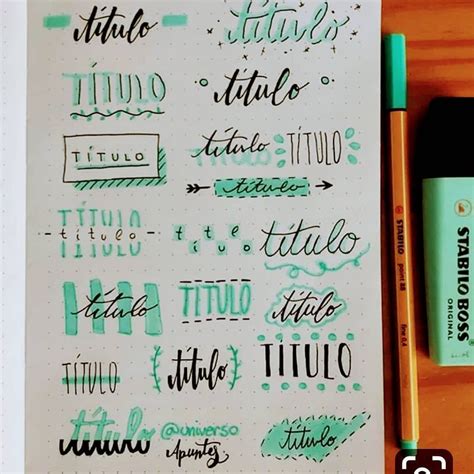 título título
TÍTULO título
TÍTULO título TÍTULO
título
TÍTULO
título título título
título TÍTULO título
TÍTULO título TÍTULO
título @universo
título Apuntes título
STABILO point 88 fine 0,4
STABILO BOSS
ORIGINAL